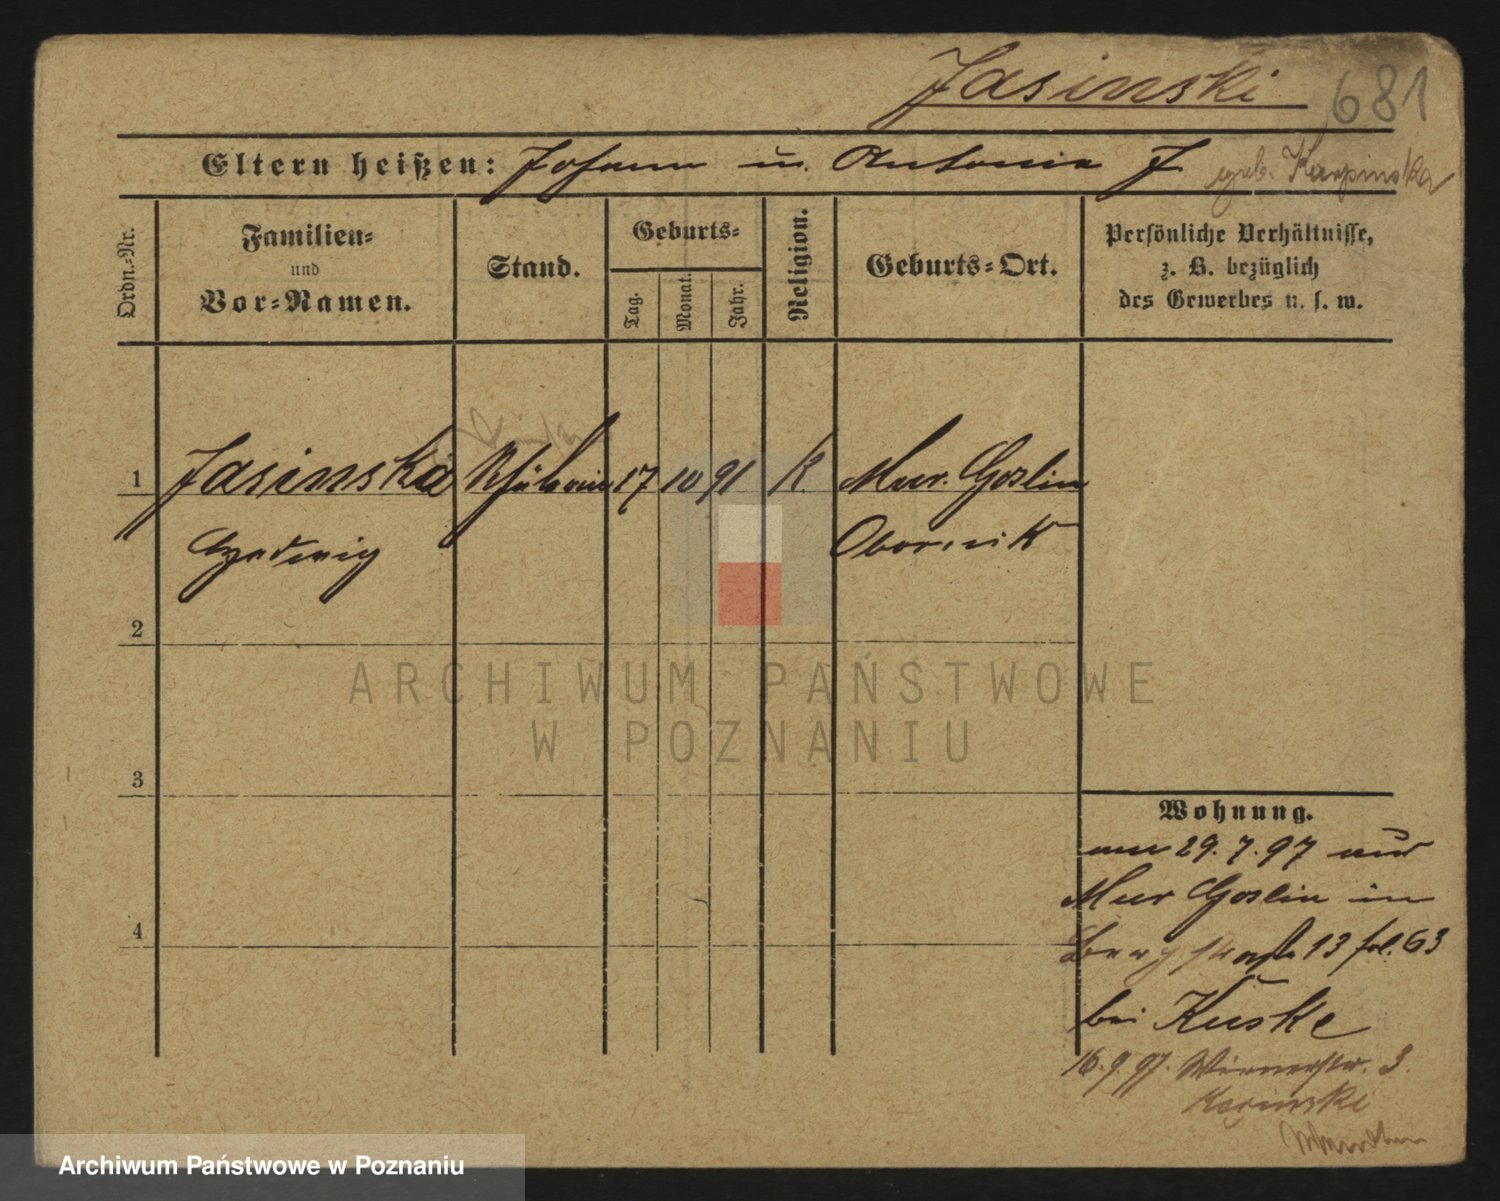 Jasinski 681
Eltern heißen: Johann u. Antonia J. geb. Karpinska
Ordn.-Nr.
Familien-
und
Vor-Namen.
Stand.
Geburts-
Tag.
Monat.
Jahr.
Religion.
Geburts-Ort.
Persönliche Verhältnisse,
z. B. bezüglich
des Gewerbes u. s. w.
1 Jasinska Schülerin 17 10 91 K. Mur. Goslin
Hedwig Obornik
2
3
4
ARCHIWUM PAŃSTWOWE
W POZNANIU
Wohnung.
am 29.7.97 aus
Mur Goslin in
Bergstraße 13 fol. 63
bei Kuske
16.9.97. Wienerstr. 3.
Archiwum Państwowe w Poznaniu